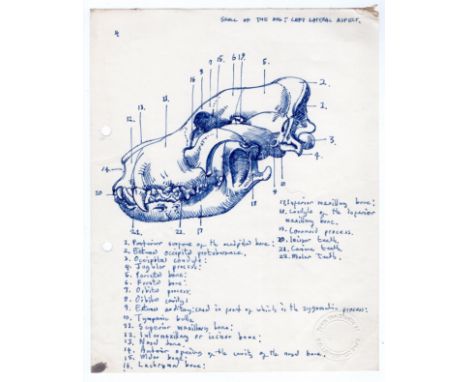 SKULL OF THE DOG: LEFT LATERAL ASPECT.
4
1. Posterior surface of the occipital bone:
2. External occipital protuberance.
3. Occipital condyle:
4. Jugular process:
5. Parietal bone:
6. Frontal bone:
7. Orbital process.
8. Orbital cavity:
9. External auditory canal in front of which is the zygomatic process:
10. Tympanic bulla
11. Superior maxillary bone:
12. Intermaxillary or incisor bone:
13. Nasal bone:
14. Anterior opening of the cavity of the nasal bone:
15. Malar bone:
16. Lachrymal bone:
17. Inferior maxillary bone:
18. Condyle of the inferior maxillary bone:
19. Coronoid process.
20. Incisor teeth
21. Canine teeth
22. Molar teeth.